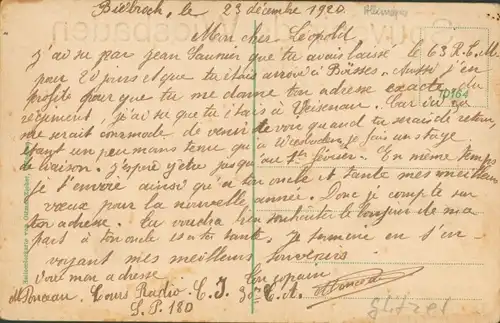 Biebrich, le 23 décembre 1920.
Mon cher Léopold
J'ai su par Jean Saunier que tu avais laissé le 63 R.C.M.
pour 20 jours et que tu étais arrivé à Aussi j'en
profite pour que tu me donne ton adresse exacte du
régiment, j'ai su que tu étais à Weisenau. Car ici ça
me serait commode de venir te voir quand tu serais de retour,
étant un peu moins tenu qu'à Wiesbaden je fais un stage
de liaison. J'espère y être jusqu'au 1er février. En même temps
je t'envoie ainsi qu'à ton oncle et tante mes meilleurs
vœux pour la nouvelle année. Donc je compte sur
ton adresse. Tu voudra bien souhaiter le bonjour de ma
part à ton oncle et ta tante. Je termine en t'en-
voyant mes meilleurs souvenirs
Voici mon adresse Ton copain
Cours Radio C.J. 30e C.A.
S.P. 180
10164